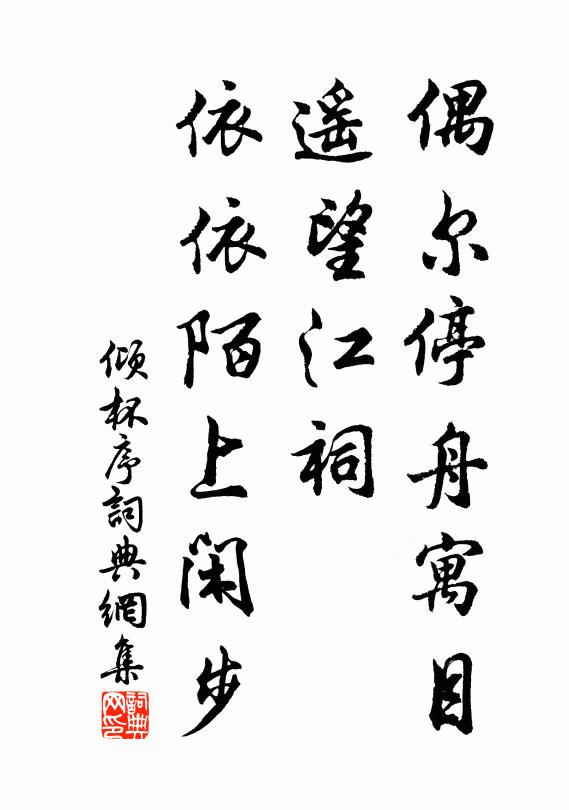 偶尔停舟寓目
遥望江祠
依依陌上闲步
倾杯序詞典網集
詞典网印